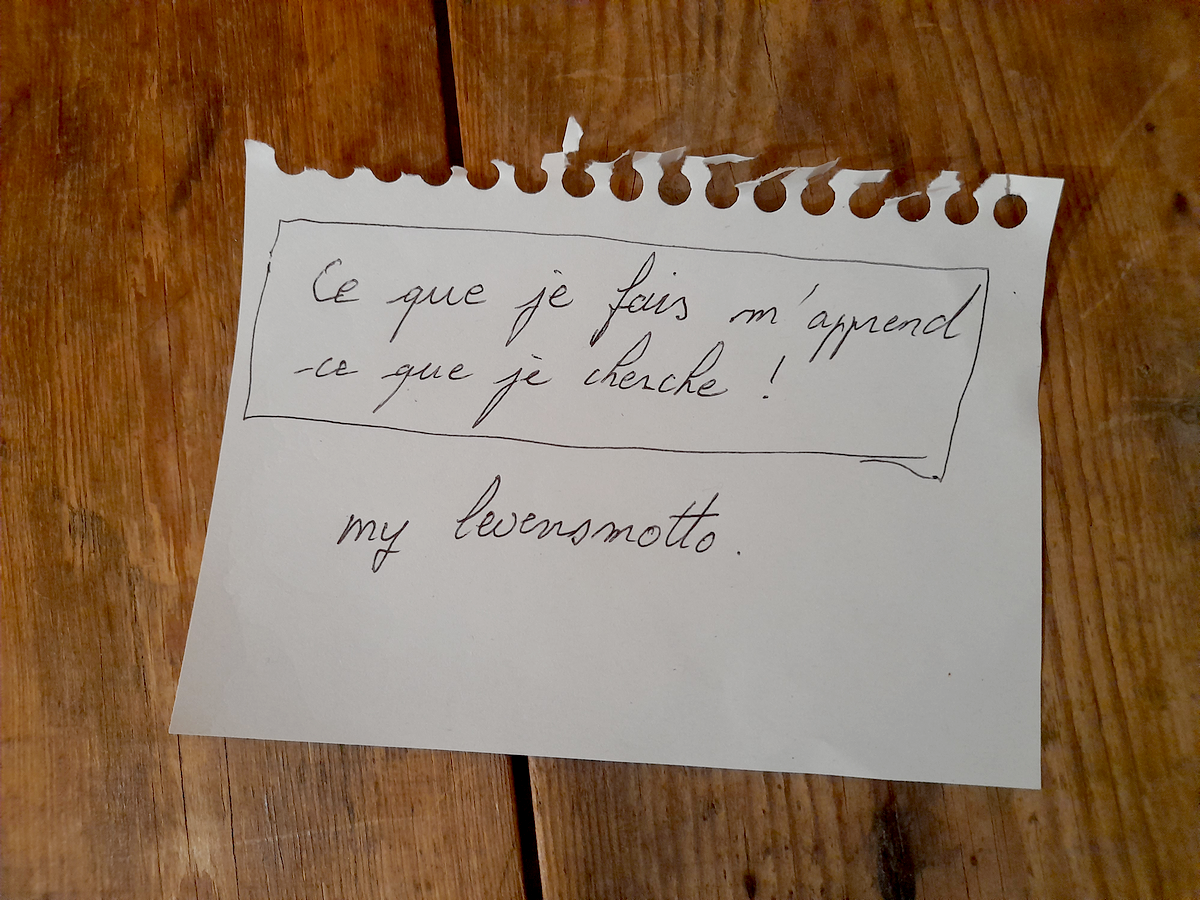 Ce que je fais m'apprend
ce que je cherche !
my levensmotto.